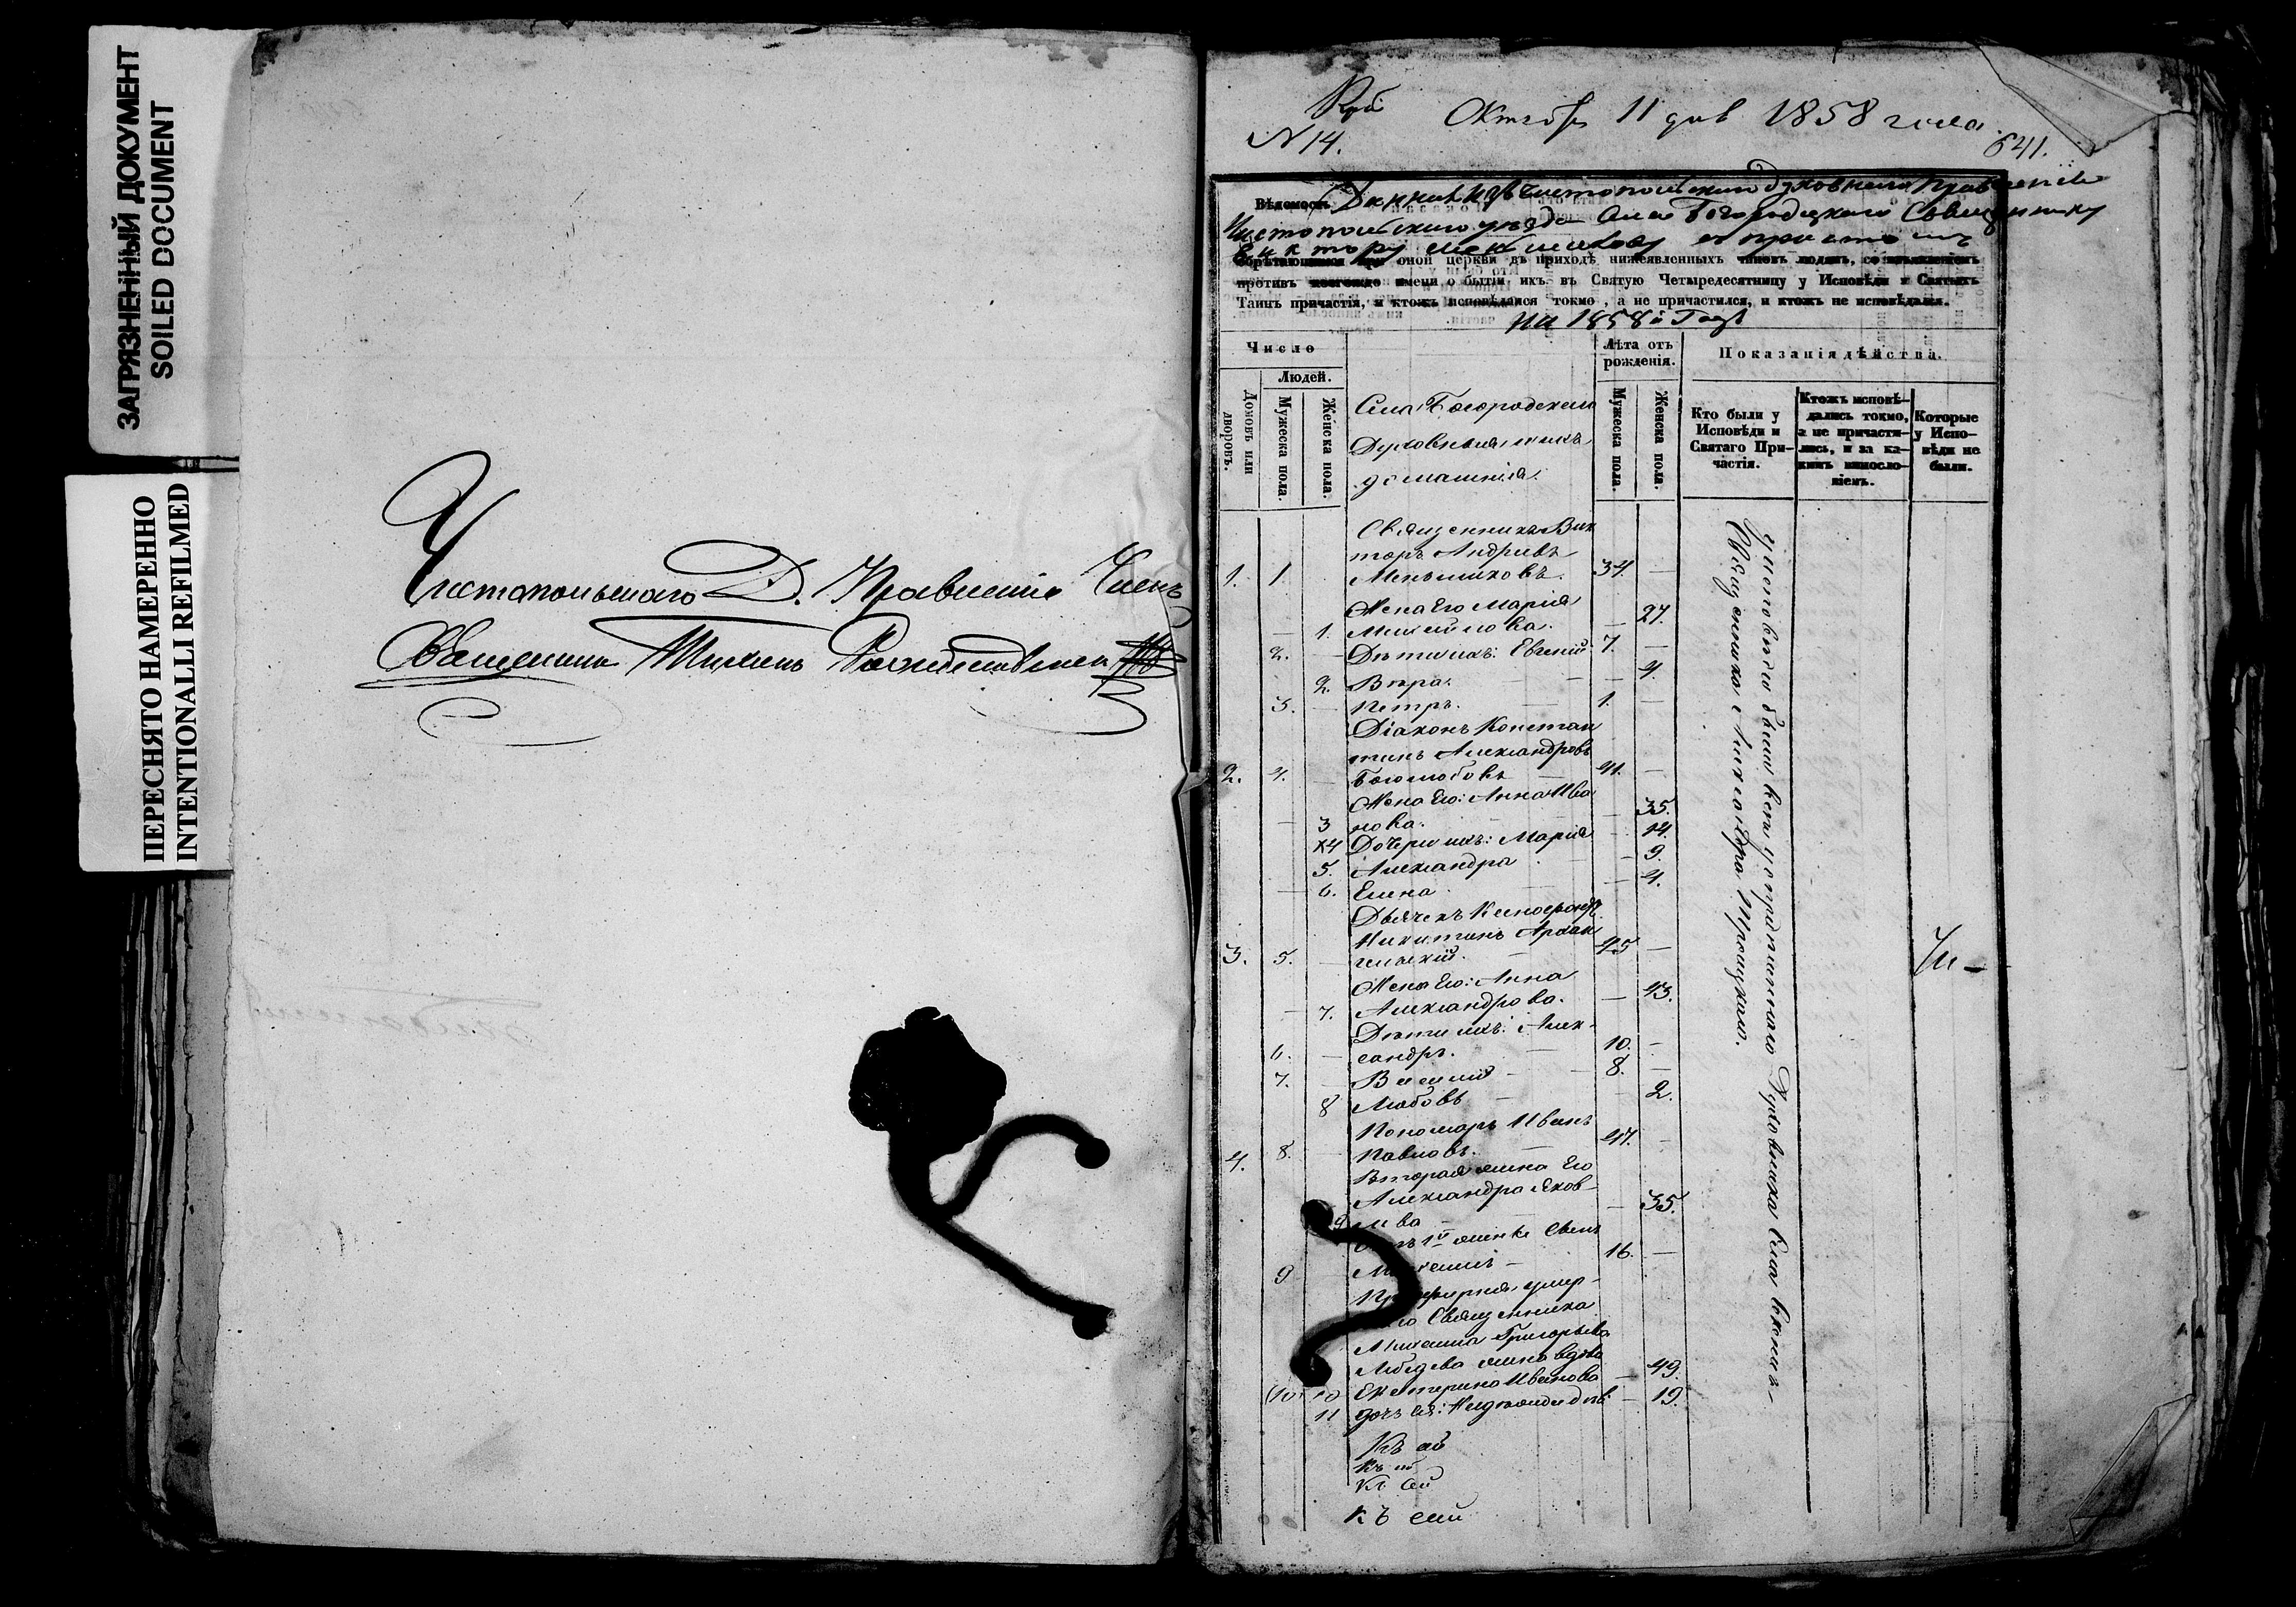 ЗАГРЯЗНЕННЫЙ ДОКУМЕНТ
SOILED DOCUMENT
ПЕРЕСНЯТО НАМЕРЕННО
INTENTIONALLI REFILMED
Чистопольскаго Д. Правленія Членъ
Священникъ
N 14.
Октября 11 дня 1858 года.
641.
Вѣдомость Данная изъ Чистопольскаго Духовнаго Правленія
Чистопольскаго уѣзда Села Богородскаго Священнику
Виктору
обрѣтающимся при оной церкви въ приходѣ нижеявленныхъ чиновъ людямъ, со изъявленіемъ
противъ коегождо имени о бытіи ихъ въ Святую Четыредесятницу у Исповѣди и Святыхъ
Таинъ причастія, и ктожъ исповѣдался токмо, а не причастился, и ктожъ не исповѣдался.
на 1858й Годъ
Число
Лѣта отъ рожденія.
Показанія дѣйства.
Людей.
Домовъ или дворовъ.
Мужеска пола.
Женска пола.
Села Богородскаго
Духовныя и ихъ
домашнія.
Мужеска пола.
Женска пола.
Кто были у Исповѣди и Святаго При-частія.
Ктожъ исповѣ-дались токмо, а не причастя-лись, и за ка-кимъ виносло-віемъ.
Которые у Испо-вѣди не были.
Священникъ Вик
торъ Андреевъ
1. 1. Меньшиковъ. 34. —
Жена Его Марія
1. Михайлова. — 27.
2. Дѣти ихъ: Евгеній 7. —
2. Вѣра. — 4.
3. Петръ. 1. —
Діаконъ Констан
тинъ Александровъ
2. 4. Боголюбовъ 41. —
Жена Его: Анна Ива
3 нова. — 35.
4 Дочери ихъ: Марія — 14.
5. Александра — 9.
6. Елена — 4.
Дьячекъ Ксенофонтъ
Никитинъ Архан
3. 5. гельскій. 45 —
Жена Его: Анна
7. Александрова. — 43.
Дѣти ихъ: Алек-
6. сандръ. 10. —
7. Василій 8. —
8 Любовь — 2.
Пономарь Иванъ
4. 8. Павловъ. 47. —
Вторая жена Его
Александра Яков-
9 лева — 35.
1й жены Сынъ
9 16. —
умер-
Священника
Михаила Григорьева
Лебедева жена вдова
10 10 Екатерина Иванова — 49.
11 дочь ея: — 19.
Къ
Къ
Къ сей
Къ сей
у исповѣди были всѣ у Духовника Села
Священника Александра Троицкаго.